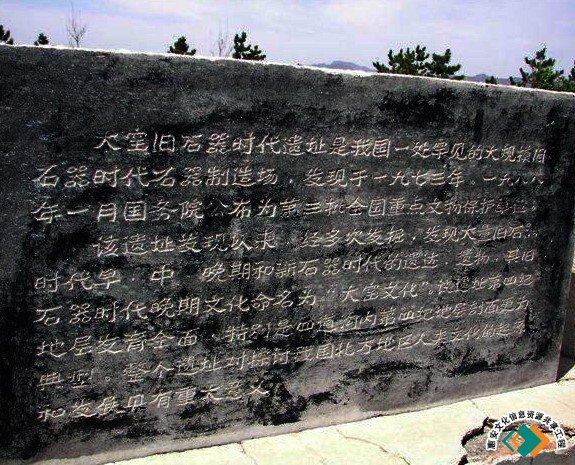 大窑旧石器时代遗址是我国一处罕见的大规模旧
石器时代石器制造场，发现于一九七三年。一九八八
年一月国务院公布为第三批全国重点文物保护单位。
该遗址发现以来，经多次发掘，发现大窑旧石
时代早 中 晚期和新石器时代的遗迹 遗物，其旧
石器时代晚期文化命名为“大窑文化”。该遗址第四纪
地层发育全面，特别是四道沟的第四纪地层剖面更为
典型。整个遗址对探讨我国北方地区人类文化的起源
和发展具有重大意义
西安文化信息资源共享工程